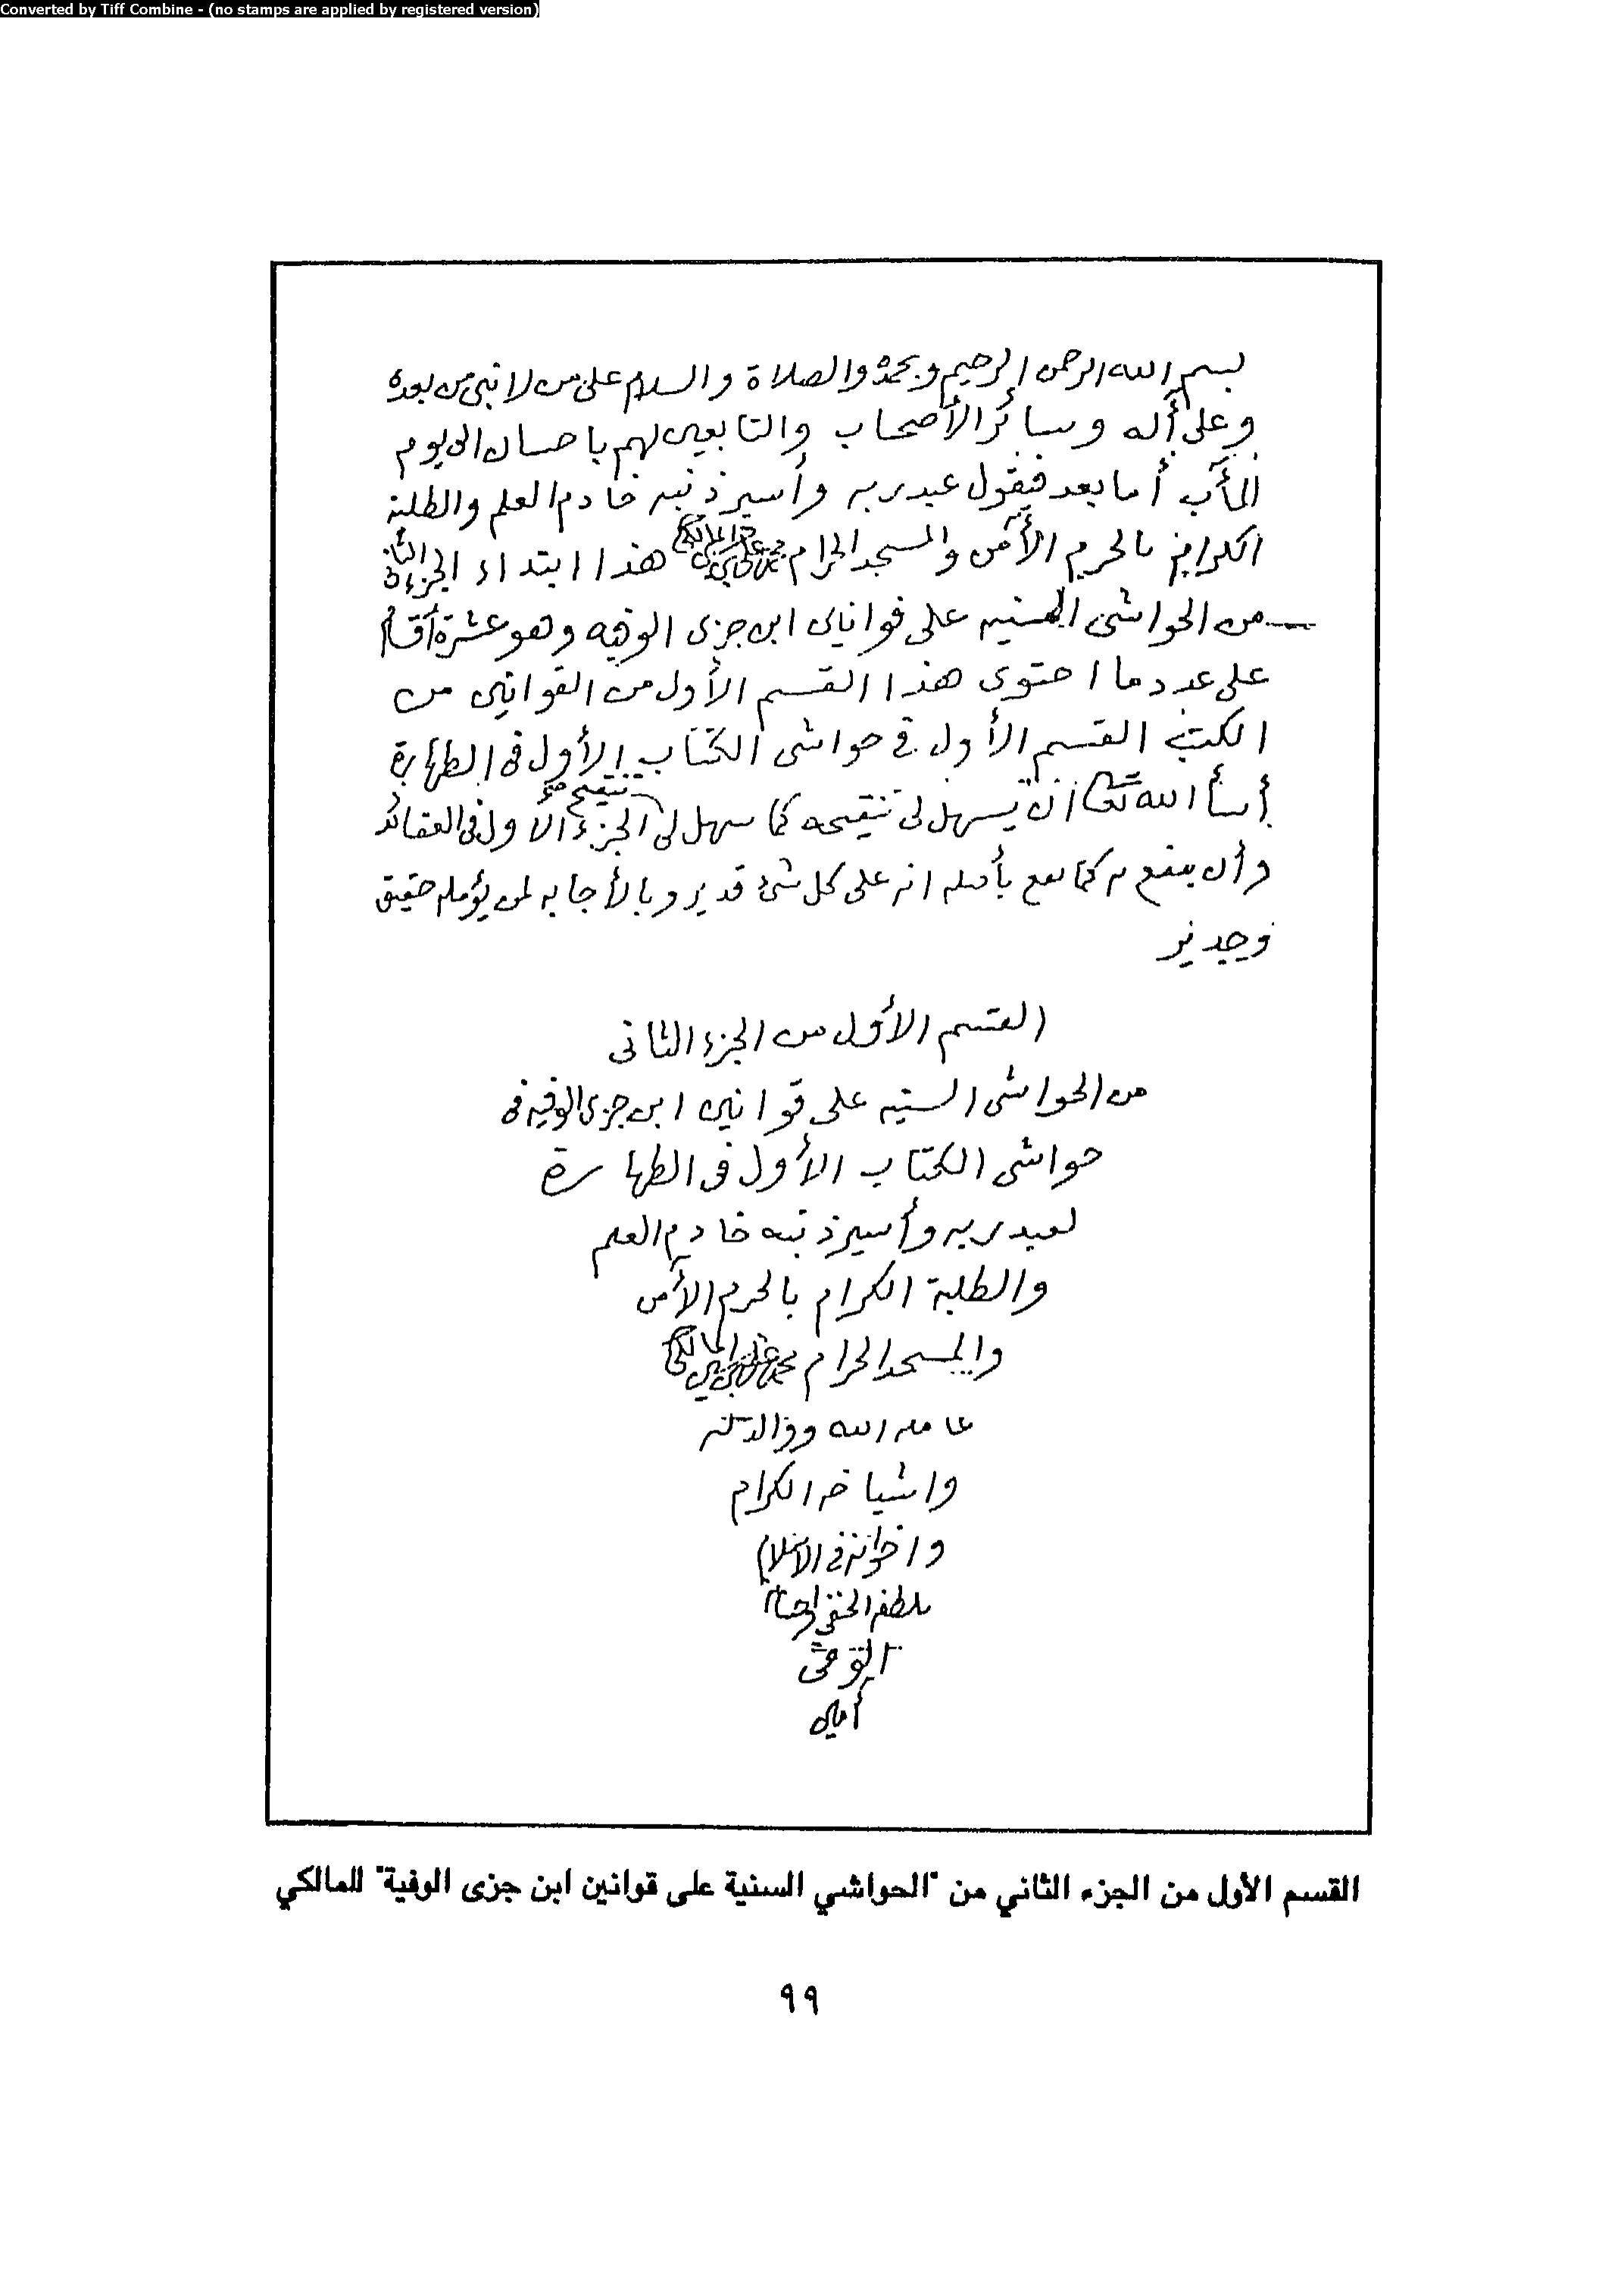 Converted by Tiff Combine - (no stamps are applied by registered version)
بسم الله الرحمن الرحيم وبحمده والصلاة والسلام على من لا نبي من بعده
وعلى آله وسائر الأصحاب والتابعين لهم باحسان الى يوم
المآب أما بعد فيقول عبد ربه وأسير ذنبه خادم العلم والطلبة
الكرام بالحرم الآمن والمسجد الحرام محمد علي بن حسين المالكي هذا ابتداء الجزء الثاني
من الحواشى السنيه على قوانين ابن جزى الوفيه وهو عشرة أقسام
على عدد ما احتوى هذا القسم الأول من القوانين من
الكتب القسم الأول في حواشى الكتاب الأول فى الطهارة
أسأل الله تعالى ان يسهل لى تنقيحه كما سهل لى تنقيح الجزء الأول فى العقائد
وأن ينفع به كما نفع بأصله انه على كل شئ قدير وبالأجابه لمن يؤمله حقيق
وجدير
القسم الأول من الجزء الثانى
من الحواشى السنيه على قوانين ابن جزى الوفيه فى
حواشى الكتاب الأول فى الطهارة
لعبد ربه وأسير ذنبه خادم العلم
والطلبة الكرام بالحرم الآمن
والمسجد الحرام محمد علي بن حسين المالكي
عامله الله ووالديه
واشياخه الكرام
واخوانه فى الاسلام
بلطفه الخفى
أمين
القسم الأول من الجزء الثاني من "الحواشي السنية على قوانين ابن جزى الوفية" للمالكي
٩٩